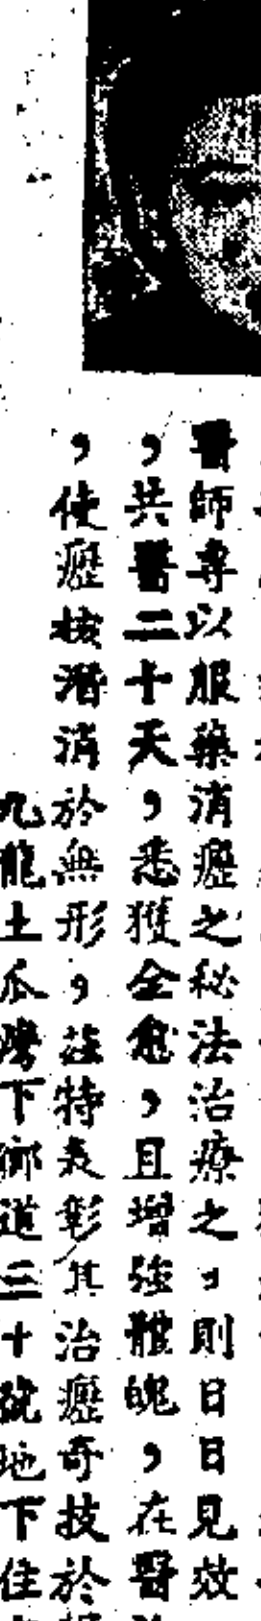 醫師專以服藥消癧之秘法治療之，則日日見效
，共醫二十天，悉獲全愈，且增強體魄，在醫
，使癧核潛消於無形，茲特表彰其治癧奇技於
九龍土瓜灣下鄉道三十號地下住